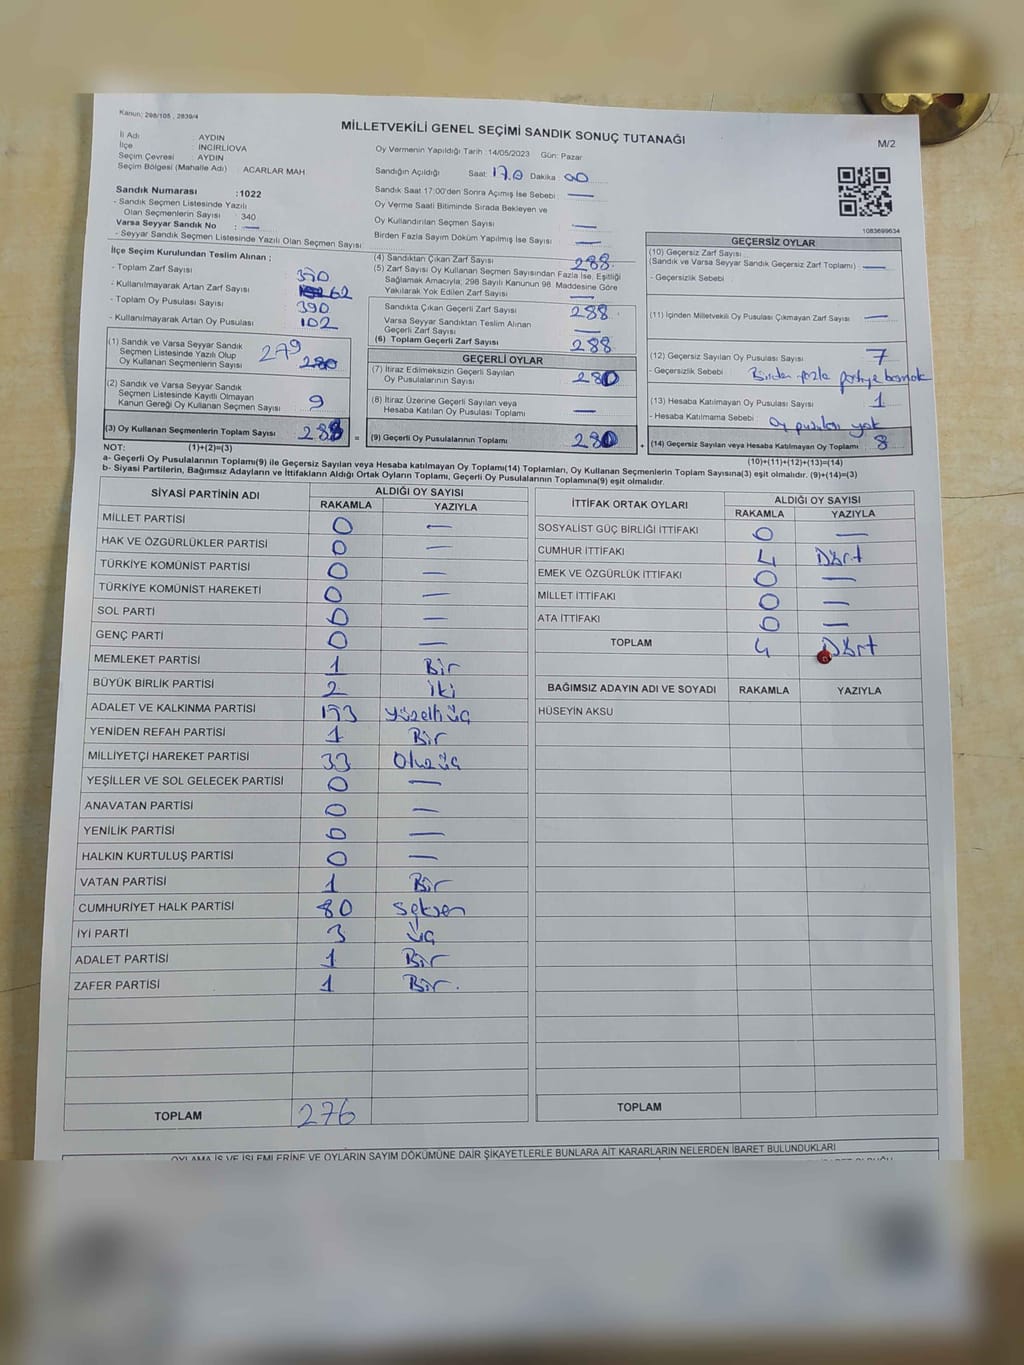 Kanun; 298/105 , 2839/4
MİLLETVEKİLİ GENEL SEÇİMİ SANDIK SONUÇ TUTANAĞI
M/2
İl Adı AYDIN
İlçe : İNCİRLİOVA
Seçim Çevresi AYDIN
Seçim Bölgesi (Mahalle Adı) ACARLAR MAH
Sandık Numarası :1022
- Sandık Seçmen Listesinde Yazılı
Olan Seçmenlerin Sayısı : 340
Varsa Seyyar Sandık No : —
- Seyyar Sandık Seçmen Listesinde Yazılı Olan Seçmen Sayısı
Oy Vermenin Yapıldığı Tarih :14/05/2023 Gün: Pazar
Sandığın Açıldığı Saat: 17.0 Dakika 00
Sandık Saat 17:00'den Sonra Açımış İse Sebebi —
Oy Verme Saati Bitiminde Sırada Bekleyen ve
Oy Kullandırılan Seçmen Sayısı —
Birden Fazla Sayım Döküm Yapılmış İse Sayısı —
1083699634
İlçe Seçim Kurulundan Teslim Alınan ;
- Toplam Zarf Sayısı 350
- Kullanılmayarak Artan Zarf Sayısı 62
- Toplam Oy Pusulası Sayısı 390
- Kullanılmayarak Artan Oy Pusulası 102
(1) Sandık ve Varsa Seyyar Sandık
Seçmen Listesinde Yazılı Olup
Oy Kullanan Seçmenlerin Sayısı 279
(2) Sandık ve Varsa Seyyar Sandık
Seçmen Listesinde Kayıtlı Olmayan
Kanun Gereği Oy Kullanan Seçmen Sayısı 9
(3) Oy Kullanan Seçmenlerin Toplam Sayısı 288
(4) Sandıktan Çıkan Zarf Sayısı 288
(5) Zarf Sayısı Oy Kullanan Seçmen Sayısından Fazla İse, Eşitliği
Sağlamak Amacıyla; 298 Sayılı Kanunun 98. Maddesine Göre
Yakılarak Yok Edilen Zarf Sayısı —
Sandıkta Çıkan Geçerli Zarf Sayısı 288
Varsa Seyyar Sandıktan Teslim Alınan
Geçerli Zarf Sayısı —
(6) Toplam Geçerli Zarf Sayısı 288
GEÇERLİ OYLAR
(7) İtiraz Edilmeksizin Geçerli Sayılan
Oy Pusulalarının Sayısı 280
(8) İtiraz Üzerine Geçerli Sayılan veya
Hesaba Katılan Oy Pusulası Toplamı —
= (9) Geçerli Oy Pusulalarının Toplamı 280
GEÇERSİZ OYLAR
(10) Geçersiz Zarf Sayısı
(Sandık ve Varsa Seyyar Sandık Geçersiz Zarf Toplamı) —
- Geçersizlik Sebebi
(11) İçinden Milletvekili Oy Pusulası Çıkmayan Zarf Sayısı —
(12) Geçersiz Sayılan Oy Pusulası Sayısı 7
- Geçersizlik Sebebi Birden fazla partiye basmak
(13) Hesaba Katılmayan Oy Pusulası Sayısı 1
- Hesaba Katılmama Sebebi Oy pusulası yok
+ (14) Geçersiz Sayılan veya Hesaba Katılmayan Oy Toplamı 8
NOT: (1)+(2)=(3)
(10)+(11)+(12)+(13)=(14)
a- Geçerli Oy Pusulalarının Toplamı(9) ile Geçersiz Sayılan veya Hesaba katılmayan Oy Toplamı(14) Toplamları, Oy Kullanan Seçmenlerin Toplam Sayısına(3) eşit olmalıdır. (9)+(14)=(3)
b- Siyasi Partilerin, Bağımsız Adayların ve İttifakların Aldığı Ortak Oyların Toplamı, Geçerli Oy Pusulalarının Toplamına(9) eşit olmalıdır.
SİYASİ PARTİNİN ADI ALDIĞI OY SAYISI
RAKAMLA YAZIYLA
MİLLET PARTİSİ 0 —
HAK VE ÖZGÜRLÜKLER PARTİSİ 0 —
TÜRKİYE KOMÜNİST PARTİSİ 0 —
TÜRKİYE KOMÜNİST HAREKETİ 0 —
SOL PARTİ 0 —
GENÇ PARTİ 0 —
MEMLEKET PARTİSİ 1 Bir
BÜYÜK BİRLİK PARTİSİ 2 iki
ADALET VE KALKINMA PARTİSİ 153 yüzelli üç
YENİDEN REFAH PARTİSİ 1 Bir
MİLLİYETÇİ HAREKET PARTİSİ 33 Otuzüç
YEŞİLLER VE SOL GELECEK PARTİSİ 0 —
ANAVATAN PARTİSİ 0 —
YENİLİK PARTİSİ 0 —
HALKIN KURTULUŞ PARTİSİ 0 —
VATAN PARTİSİ 1 Bir
CUMHURİYET HALK PARTİSİ 80 Seksen
İYİ PARTİ 3 üç
ADALET PARTİSİ 1 Bir
ZAFER PARTİSİ 1 Bir.
TOPLAM 276
İTTİFAK ORTAK OYLARI ALDIĞI OY SAYISI
RAKAMLA YAZIYLA
SOSYALİST GÜÇ BİRLİĞİ İTTİFAKI 0 —
CUMHUR İTTİFAKI 4 Dört
EMEK VE ÖZGÜRLÜK İTTİFAKI 0 —
MİLLET İTTİFAKI 0 —
ATA İTTİFAKI 0 —
TOPLAM 4 Dört
BAĞIMSIZ ADAYIN ADI VE SOYADI RAKAMLA YAZIYLA
HÜSEYİN AKSU
TOPLAM
OYLAMA İŞ VE İŞLEMLERİNE VE OYLARIN SAYIM DÖKÜMÜNE DAİR ŞİKAYETLERLE BUNLARA AİT KARARLARIN NELERDEN İBARET BULUNDUKLARI